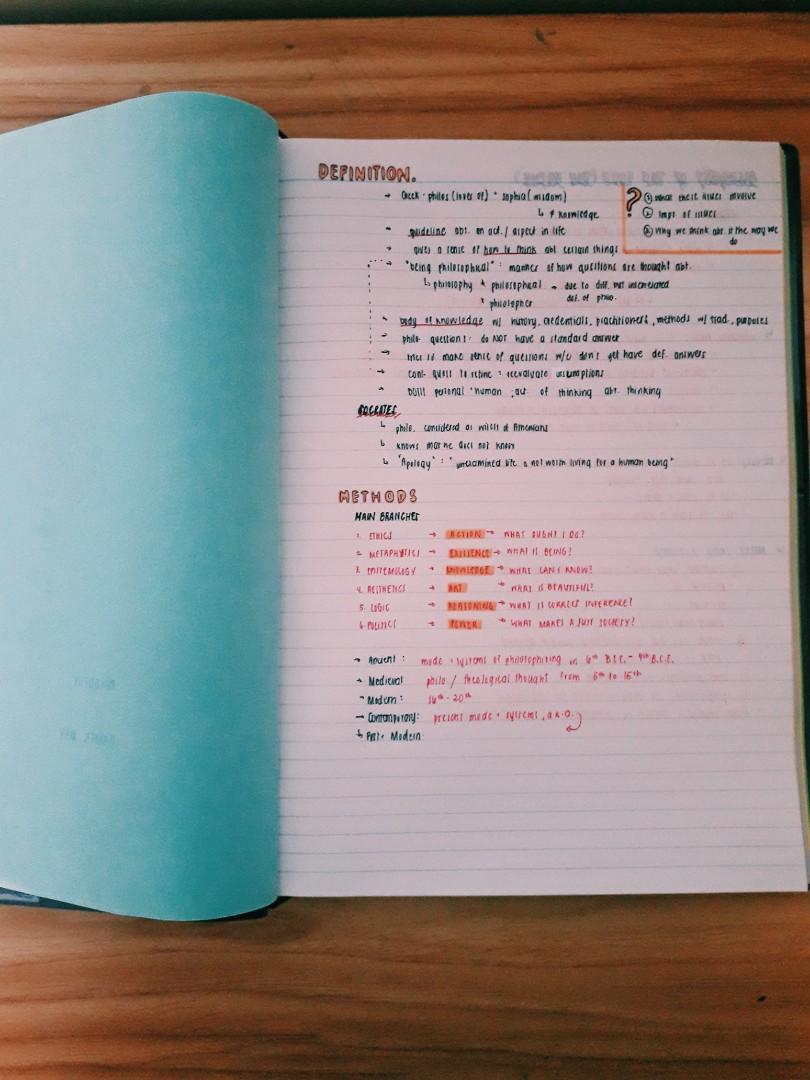 DEFINITION.
→ Greek - philos (lover of) + sophia (wisdom)
↳ ≠ knowledge
? ① What these issues involve
② Impt. of issues
③ Why we think abt. it the way we do
→ guideline abt. an act. / aspect in life
→ gives a sense of how to think abt certain things
→ "being philosophical" : manner of how questions are thought abt.
↳ philosophy * philosophical → due to diff. but interrelated
* philosopher def. of philo.
→ body of knowledge w/ history, credentials, practitioners, methods w/ trad., purposes
→ philo questions : do NOT have a standard answer
→ tries to make sense of questions w/c don't yet have def. answers
→ cont. quest to refine : reevaluate assumptions
→ both personal + human ; act of thinking abt. thinking
SOCRATES.
↳ philo. considered as wisest of Athenians
↳ knows that he does not know
↳ "Apology" : "unexamined life is not worth living for a human being"
METHODS
MAIN BRANCHES
1. ETHICS → ACTION → WHAT OUGHT I DO?
2. METAPHYSICS → EXISTENCE → WHAT IS BEING?
3. EPISTEMOLOGY → KNOWLEDGE → WHAT CAN I KNOW?
4. AESTHETICS → ART → WHAT IS BEAUTIFUL?
5. LOGIC → REASONING → WHAT IS CORRECT INFERENCE?
6. POLITICS → POWER → WHAT MAKES A JUST SOCIETY?
→ Ancient : mode + systems of philosophizing in 6th B.C.E. - 4th B.C.E.
→ Medieval philo. / theological thought from 5th to 15th
→ Modern : 16th - 20th
→ Contemporary: present mode + systems, a.k.a.
↳ Post - Modern